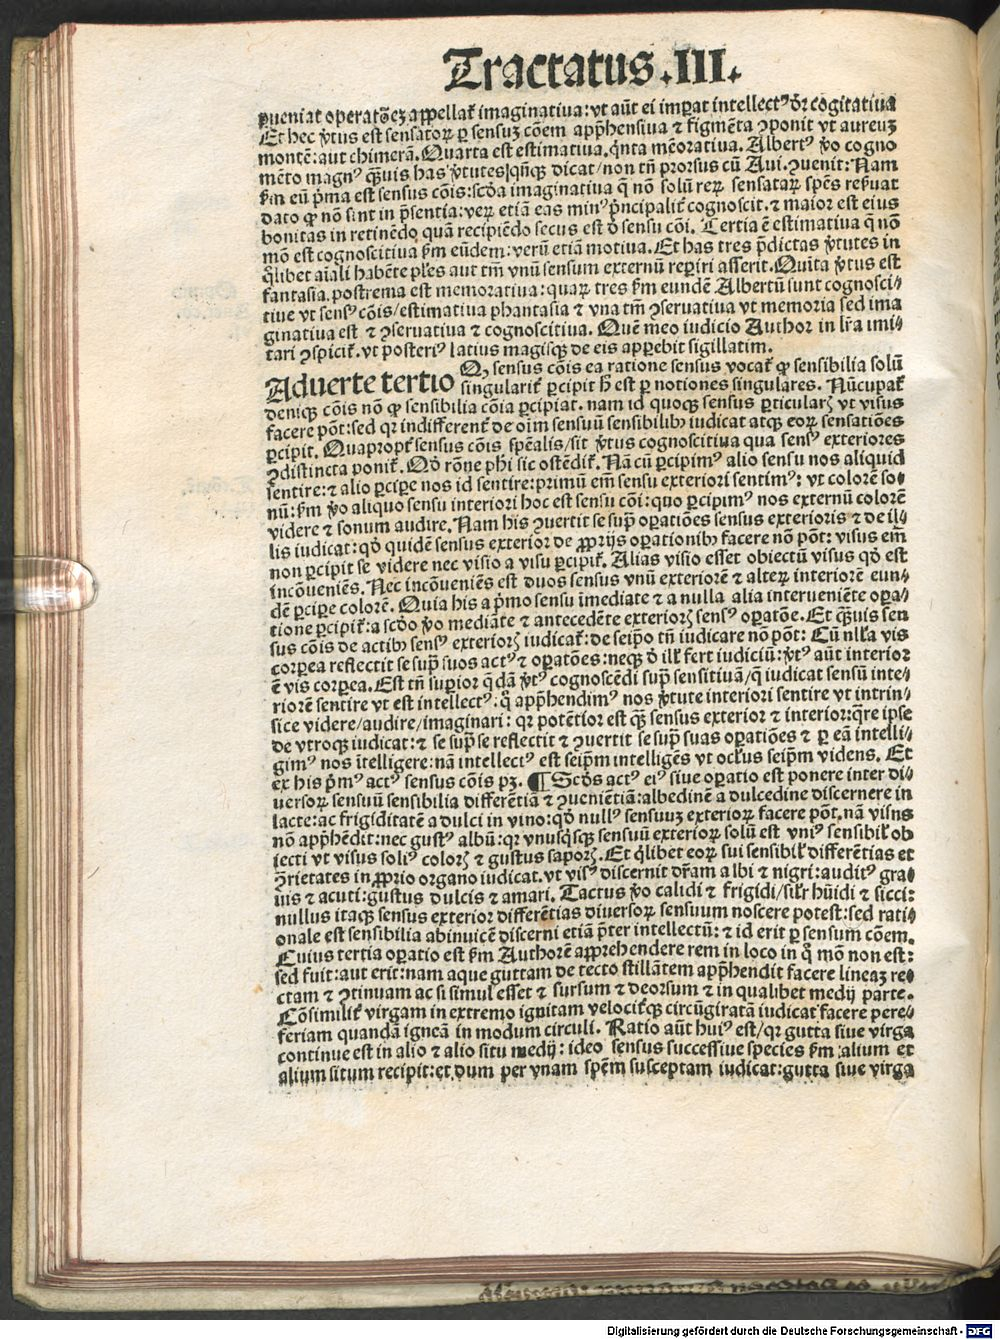 Tractatus .III.
pueniat operatōeꝫ appellat᷑ imaginatiua: vt aūt ei imꝑat intellectꝰ dr̄ cogitatiua
Et hec ꝟtus est sensatoꝝ ꝑ sensuꝫ cōem appꝛ̄hensiua ⁊ figmēta ꝯponit vt aureuꝫ
montē: aut chimerā. Quarta est estimatiua. qͥnta mēoratiua. Albertꝰ ꝟo cogno
mēto magnꝰ qᷓuis has ꝟtutes qͥnqꝫ dicat/non tñ prorsus cū Aui. ꝯuenit: Nam
ẜm eū pͥma est sensus cōis: scḋa imaginatiua q̄ nō solū reꝝ sensataꝝ sp̄es reẜuat
dato ꝙ nō sint in pn̄sentia: veꝝ etiā eas minꝰ pͥncipalit᷑ cognoscit. ⁊ maior est eius
bonitas in retinēdo quā recipiēdo secus est ḋ sensu cōi. Tertia ē estimatiua q̄ nō
mō est cognoscitiua ẜm eūdem: verū etiā motiua. Et has tres pꝛ̄dictas ꝟtutes in
qͦlibet aīali habēte pl̄es aut tm̄ vnū sensum externū reꝑiri asserit. Quīta ꝟtus est
fantasia. postrema est memoratiua: quaꝝ tres ẜm eundē Albertū sunt cognosci/
tiue vt sensꝰ cōis/estimatiua phantasia ⁊ vna tm̄ ꝯseruatiua vt memoria sed ima
ginatiua est ⁊ ꝯseruatiua ⁊ cognoscitiua. Quē meo iudicio Author in lr̄a imi/
tari ꝯspicit᷑. vt posteriꝰ latius magisqꝫ de eis apꝑebit sigillatim.
Aduerte tertio Qꝫ sensus cōis ea ratione sensus vocat᷑ ꝙ sensibilia solū
singularit᷑ ꝑcipit hͦ est ꝑ notiones singulares. Nūcupat᷑
deniqꝫ cōis nō ꝙ sensibilia cōia ꝑcipiat. nam id quoqꝫ sensus ꝑticularꝭ vt visus
facere pōt: sed qꝛ indifferent᷑ de oīm sensuū sensibilibꝫ iudicat atqꝫ eoꝝ sensatiōes
ꝑcipit. Quapropt᷑ sensus cōis sp̄ealis/sit ꝟtus cognoscitiua qua sensꝰ exteriores
ꝯdistincta ponit᷑. Qḋ rōne phi sic ostēdit᷑. Nā cū ꝑcipimꝰ alio sensu nos aliquid
sentire: ⁊ alio ꝑcipe nos id sentire: primū em̄ sensu exteriori sentimꝰ: vt colorē so/
nū: ẜm ꝟo aliquo sensu interiori hoc est sensu cōi: quo ꝑcipimꝰ nos externū colorē
videre ⁊ sonum audire. Nam his ꝯuertit se supͣ oꝑatiōes sensus exterioris ⁊ de il/
lis iudicat: qḋ quidē sensus exterior de ꝓprijs oꝑationibꝫ facere nō pōt: visus em̄
non ꝑcipit se videre nec visio a visu ꝑcipit᷑. Alias visio esset obiectū visus qḋ est
incōueniēs. Nec incōueniēs est duos sensus vnū exteriorē ⁊ alteꝝ interiorē eun/
dē ꝑcipe colorē. Quia his a pͥmo sensu īmediate ⁊ a nulla alia interueniēte oꝑa/
tione ꝑcipit᷑: a scḋo ꝟo mediate ⁊ antecedēte exteriorꝭ sensꝰ oꝑatōe. Et qᷓuis sen
sus cōis de actibꝫ sensꝰ exteriorꝭ iudicat᷑: de seipō tñ iudicare nō pōt: Cū nll̄a vis
corꝑea reflectit se supͣ suos actꝰ ⁊ oꝑatōes: neqꝫ ḋ ill᷑ fert iudiciū: ꝟtꝰ aūt interior
ē vis corꝑea. Est tñ superior q̄dā ꝟtꝰ cognoscēdi supͣ sensitiuā/q̄ iudicat sensū inte/
riorē sentire vt est intellectꝰ: qͣ appꝛ̄hendimꝰ nos ꝟtute interiori sentire vt intrin/
sice videre/audire/imaginari: qꝛ potētior est qᷓꝫ sensus exterior ⁊ interior: qͣre ipse
de vtroqꝫ iudicat: ⁊ se supͣ se reflectit ⁊ ꝯuertit se supͣ suas oꝑatiōes ⁊ ꝑ eā intelli/
gimꝰ nos ītelligere: nā intellectꝰ est seipm̄ intelligēs vt ocl̄us seipm̄ videns. Et
ex his pͥmꝰ actꝰ sensus cōis pꝫ. ¶ Scḋs actꝰ eiꝰ siue oꝑatio est ponere inter di/
uersoꝝ sensuū sensibilia differētiā ⁊ ꝯueniētiā: albedinē a dulcedine discernere in
lacte: ac frigiditatē a dulci in vino: qḋ nullꝰ sensuuꝫ exterioꝝ facere pōt. nā visus
nō appꝛ̄hēdit: nec gustꝰ albū: qꝛ vnusqͥsqꝫ sensuū exterioꝝ solū est vniꝰ sensibil᷑ ob
iecti vt visus soliꝰ colorꝭ ⁊ gustus saporꝭ. Et qͥlibet eoꝝ sui sensibil᷑ differētias et
ꝯrietates in ꝓprio organo iudicat. vt visꝰ discernit dr̄am albi ⁊ nigri: auditꝰ gra/
uis ⁊ acuti: gustus dulcis ⁊ amari. Tactus ꝟo calidi ⁊ frigidi/sil᷑r hūidi ⁊ sicci:
nullus itaqꝫ sensus exterior differētias diuersoꝝ sensuum noscere potest: sed rati/
onale est sensibilia abinuicē discerni etiā pͥter intellectū: ⁊ id erit ꝑ sensum cōem.
Cuius tertia oꝑatio est ẜm Authorē apprehendere rem in loco in qͦ mō non est:
sed fuit: aut erit: nam aque guttam de tecto stillātem appꝛ̄hendit facere lineaꝫ re/
ctam ⁊ ꝯtinuam ac si simul esset ⁊ sursum ⁊ deorsum ⁊ in qualibet medij parte.
Cōsimilit᷑ virgam in extremo ignitam velocit᷑qꝫ circūgiratā iudicat facere pere/
feriam quandā igneā in modum circuli. Ratio aūt huiꝰ est/qꝛ gutta siue virga
continue est in alio ⁊ alio situ medij: ideo sensus successiue species ẜm alium et
alium situm recipit: et dum per vnam spēm susceptam iudicat: gutta siue virga
Digitalisierung gefördert durch die Deutsche Forschungsgemeinschaft - DFG